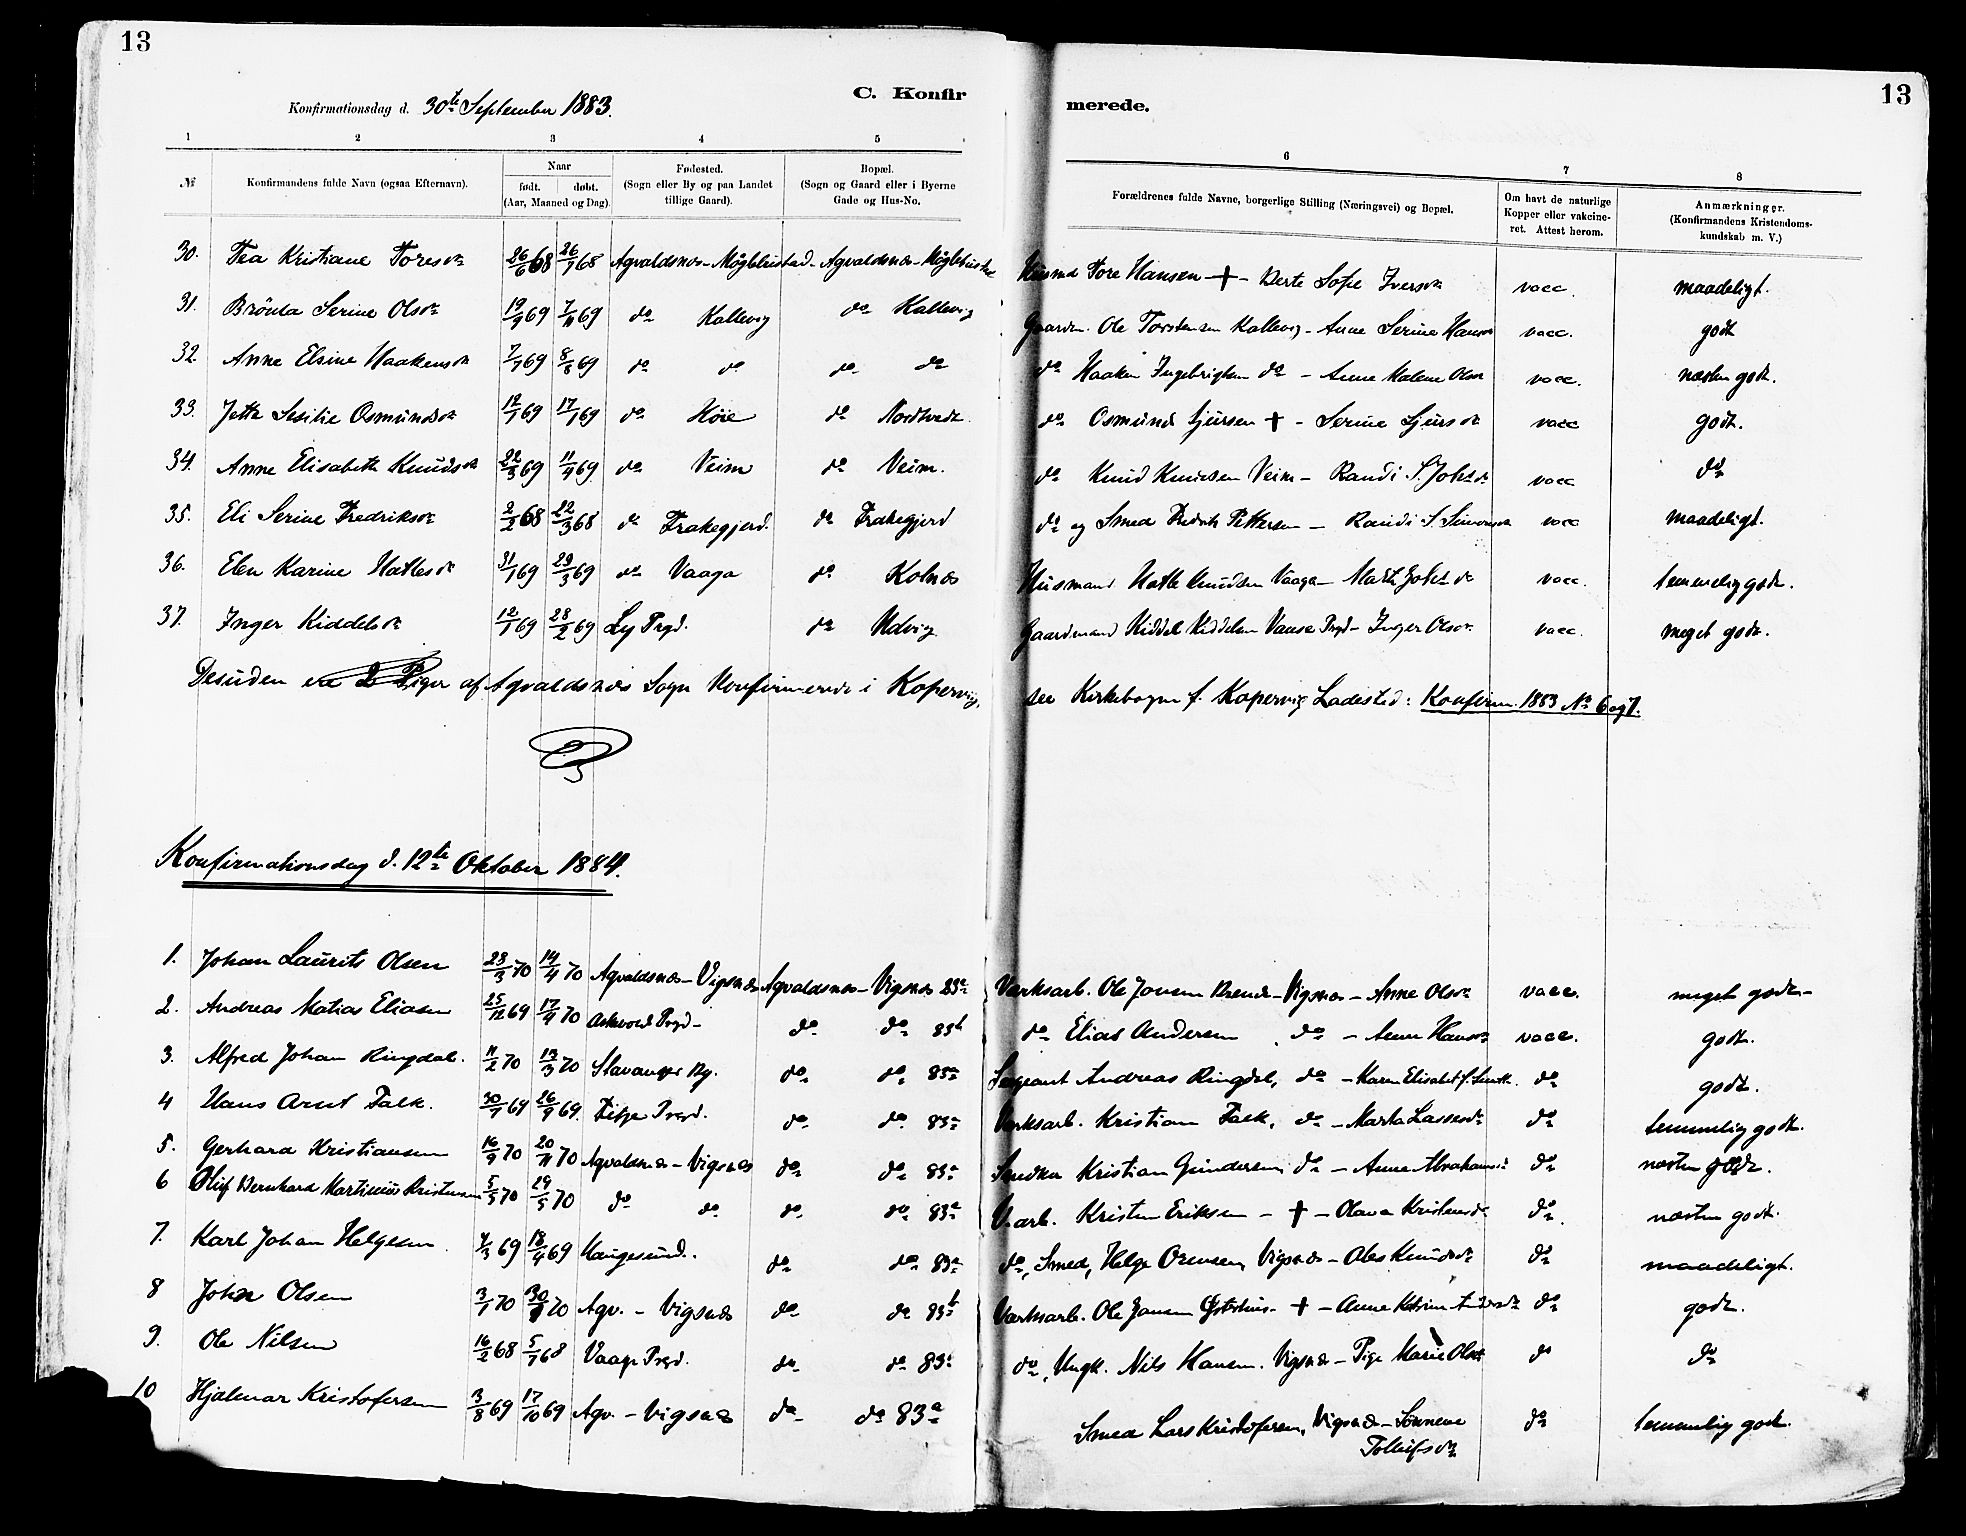 13
13
Konfirmationsdag d. 30te September 1883.
C. Konfir
merede.
1 2 3 4 5
6 7 8
№
Konfirmandens fulde Navn (ogsaa Efternavn).
Naar
født. døbt.
(Aar, Maaned og Dag).
Fødested.
(Sogn eller By og paa Landet
tillige Gaard).
Bopæl.
(Sogn og Gaard eller i Byerne
Gade og Hus-No.
Forældrenes fulde Navne, borgerlige Stilling (Næringsvei) og Bopæl.
Om havt de naturlige
Kopper eller vakcine-
ret. Attest herom.
Anmærkninger.
(Konfirmandens Kristendoms-
kundskab m. V.)
30. Tea Kristiane Toresdr 26/6 68 26/7 68 Agvaldsnæs - Agvaldsnæs - Tore Hansen + - Berte Sofie Iversdr vacc. maadeligt.
31. Serine Olsdr 19/9 69 7/11 69 do Kallevig do Kallevig Gaardm. Ole Torstensen Kallevig - Anne Serine vacc. godt
32. Anne Elsine Haakensdr 7/7 69 8/8 69 do do do do do Haaken Ingebrigtsen do - Anne Malene Olsdr vacc. næsten godt.
33. Jette Sesilie Osmundsdr 12/1 69 17/1 69 do Høie do Nordtvedt do Osmund Sjursen + - Serine Sjursdr vacc godt.
34. Anne Elisabeth Knudsdr 22/3 69 11/4 69 do Veim do Veim. do Knud Knudsen Veim - Randi S. Johsdr vacc do
35. Eli Serine Fredriksdr 2/2 68 22/3 68 do Frakegjerd. do Frakegjerd do og Smed Fredrik Pettersen - Randi S. Simonsdr vacc maadeligt.
36. Elen Karine Hatlesdr 31/1 69 29/3 69 do Vaaga do Kolnæs Husmand Hatle Knudsen Vaaga - Johsdr vacc. temmelig godt.
37. Inger Kiddelsdr 12/1 69 28/2 69 Ly Prgd. do Udvig Gaardmand Kiddel Kiddelsen Vanse Prgd - Inger Olsdr. vacc. meget godt.
Desuden ere 2 Piger af Agvaldsnæs Sogn Konfirmerede i Kopervig, see Kirkebogen f. Kopervig Ladested: Konfirm. 1883 No 6 og 7.
Konfirmationsdag d. 12te Oktober 1884.
1. Johan Laurits Olsen 23/3 70 14/4 70 Agvaldsnæs - Vigsnæs Agvaldsnæs - Vigsnæs 83a Værksarb. Ole Jonsen - Vigsnæs - Anne Olsdr vacc. meget godt -
2. Andreas Matias Eliasen 25/12 69 17/4 70 Askvold Prgd - do do 83b do Elias Andersen do - Anne Hansdr vacc. godt.
3. Alfred Johan Ringdal. 11/2 70 13/3 70 Stavanger By. do do 83a Sergeant Andreas Ringdal, do - Karen Elisabet f. Smith. do godt.
4 Hans Arnt Falk. 30/7 69 26/9 69. Fitje Prgd. do do 83a Værksarb. Kristian Falk, do - Marta Lassesdr do temmelig godt.
5. Gerhard Kristiansen 16/9 70 20/11 70 Agvaldsnæs - Vigsnæs do do 83a Snedker Kristian Gundersen, do - Anne Abrahamsdr do næsten godt.
6 Oluf Bernhard Martinius Kristensen 5/5 70 29/5 70 do do do do 83a V. arb. Kristen Eriksen - + - Olava Kristensdr do. næsten godt.
7. Karl Johan Helgesen 7/3 69 18/4 69 Haugesund. do do 83a do, Smed, Helge Ormsen, Vigsnæs - Knudsdr do maadeligt.
8 Johan Olsen 3/1 70 30/1 70 Agv. - Vigsnæs do do 83b Værksarb. Ole Jansen + - Anne Katrine do godt.
9. Ole Nilsen 16/2 68 5/7 68 Vaage Prgd. do do 83b do, Ungk. Nils Hansen. Vigsnæs - Pige Marie Olsdr do do
10 Hjalmar Kristofersen 3/8 69 17/10 69 Agv. - Vigsnæs do do 83a Smed Lars Kristofersen, Vigsnæs - Sønneve do temmelig godt.
Tollefsdr